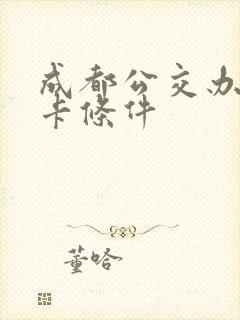 成都公交办
卡條件
董哈